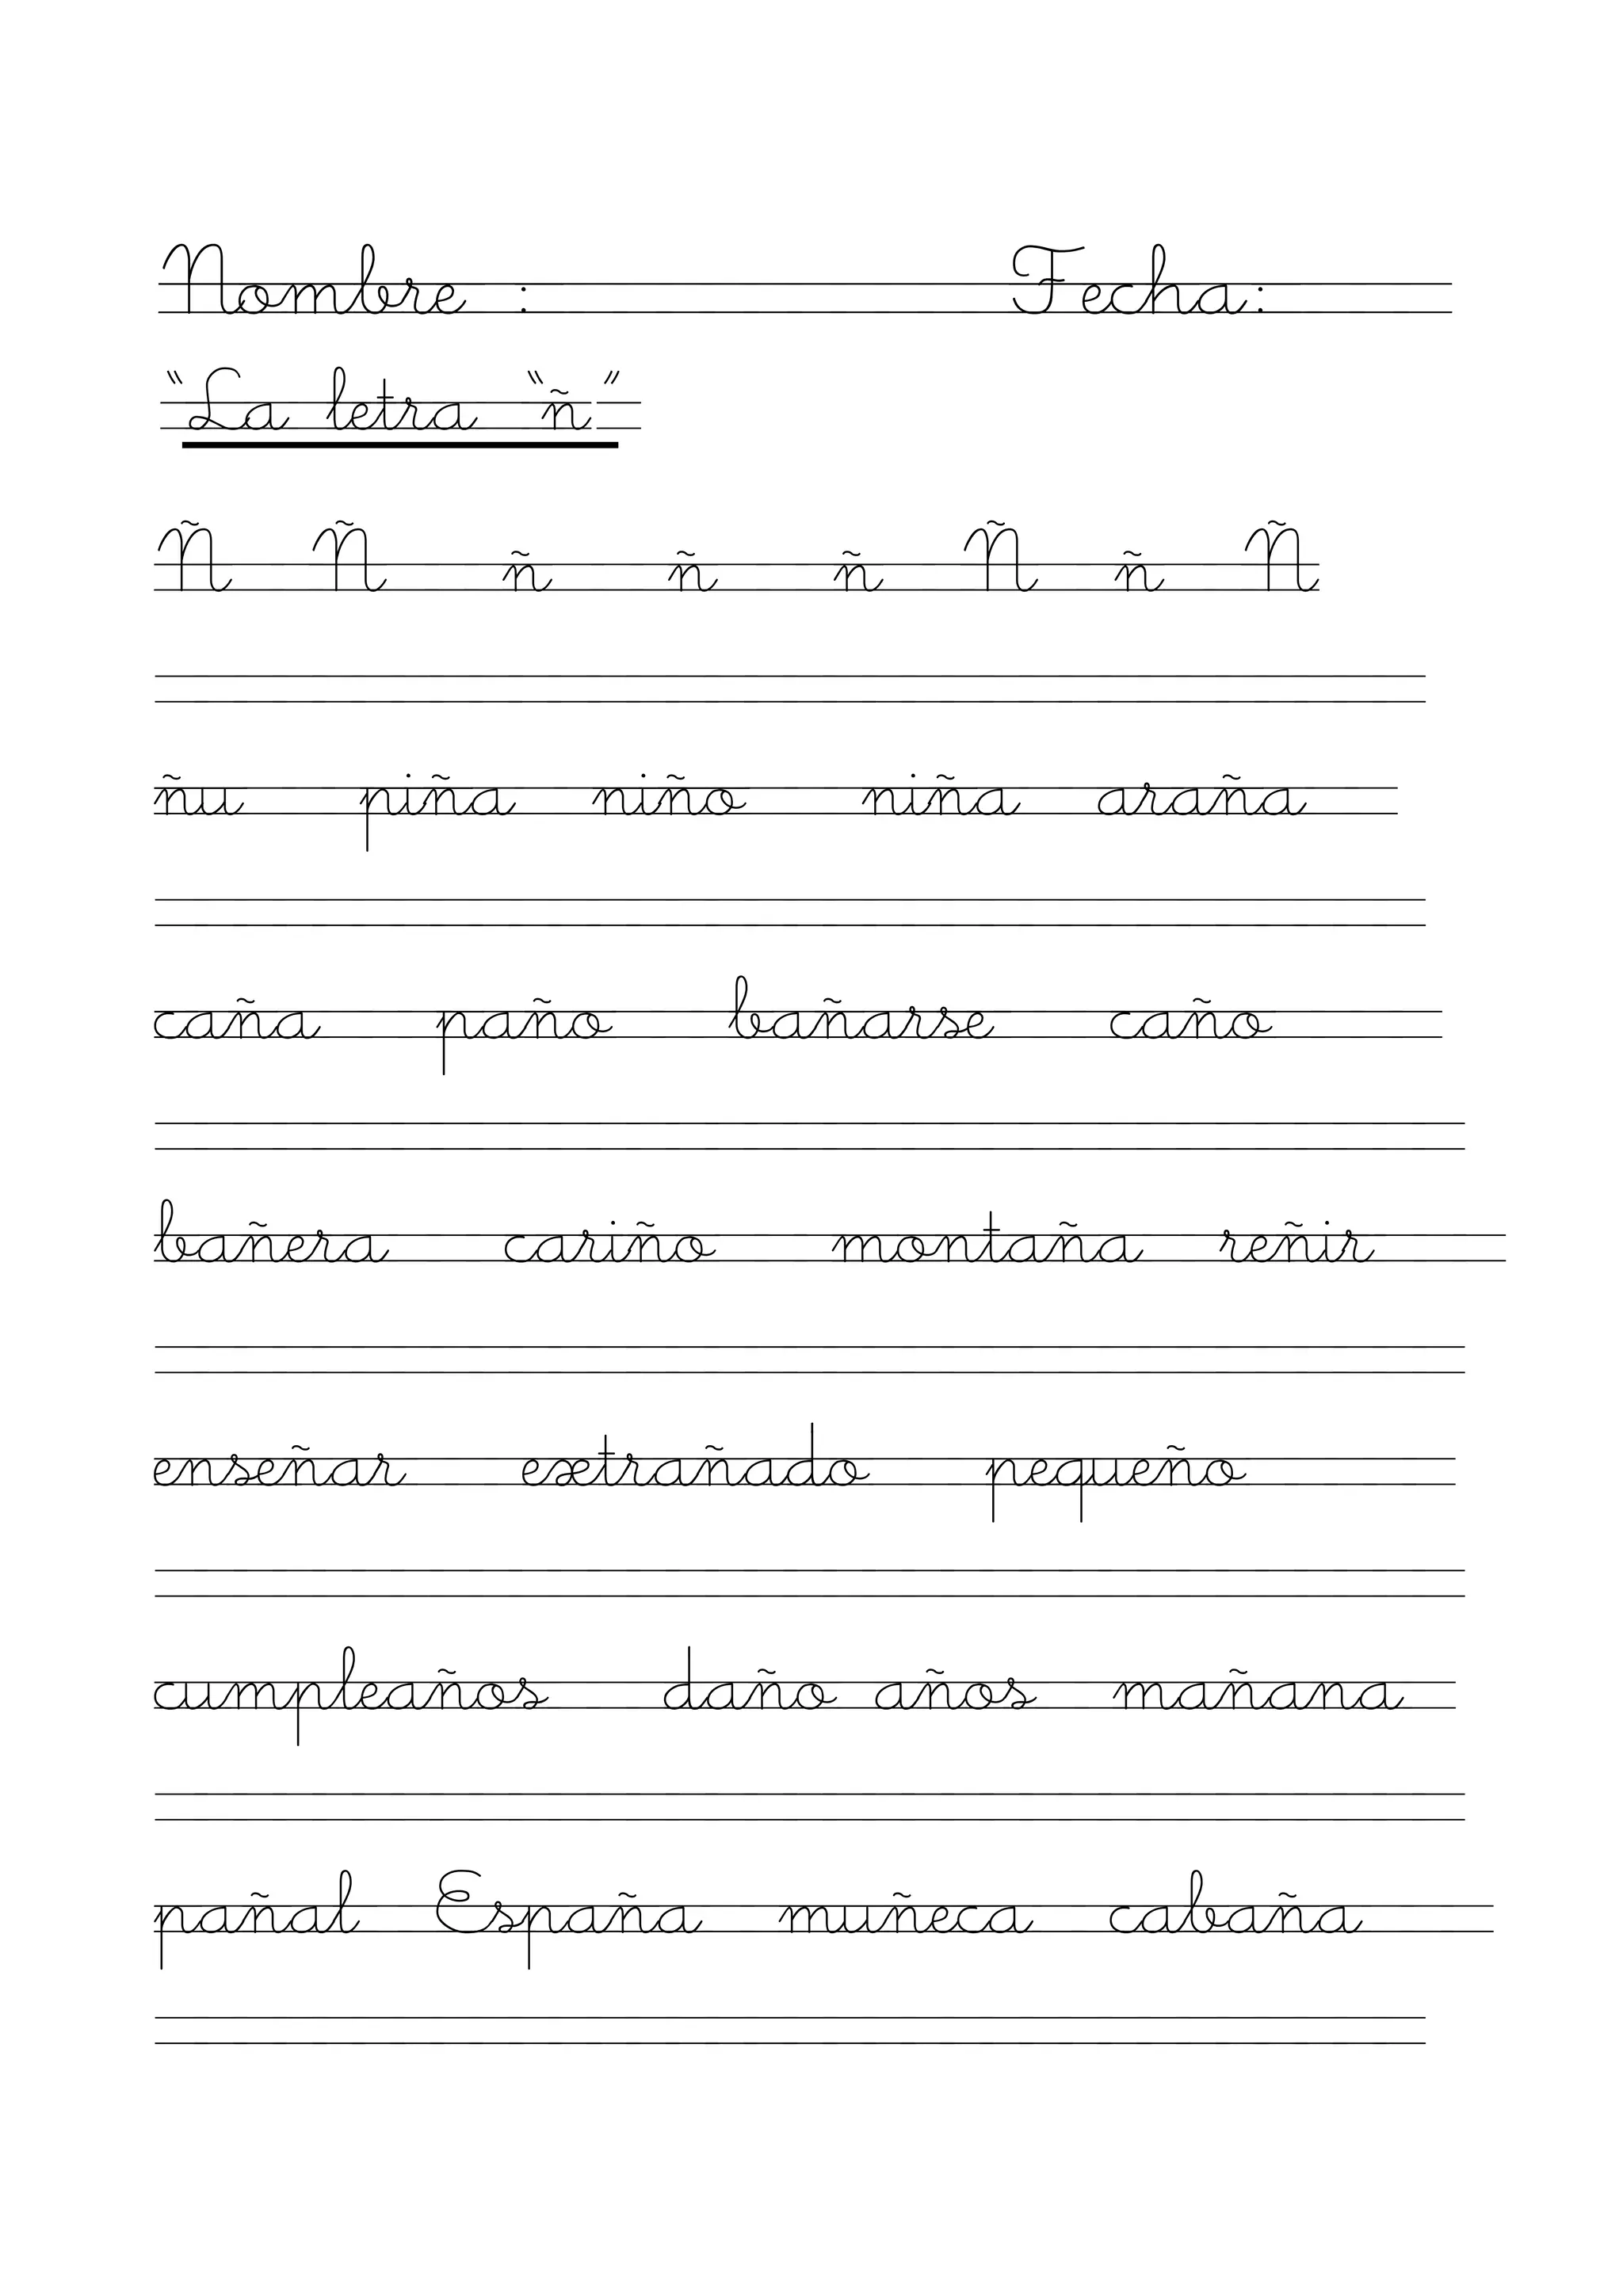 Nombre : Fecha:
"La letra "ñ"
Ñ Ñ ñ ñ ñ Ñ ñ Ñ
ñu piña niño niña araña
caña paño bañarse caño
bañera cariño montaña reñir
enseñar extrañado pequeño
cumpleaños daño años mañana
pañal España muñeca cabaña